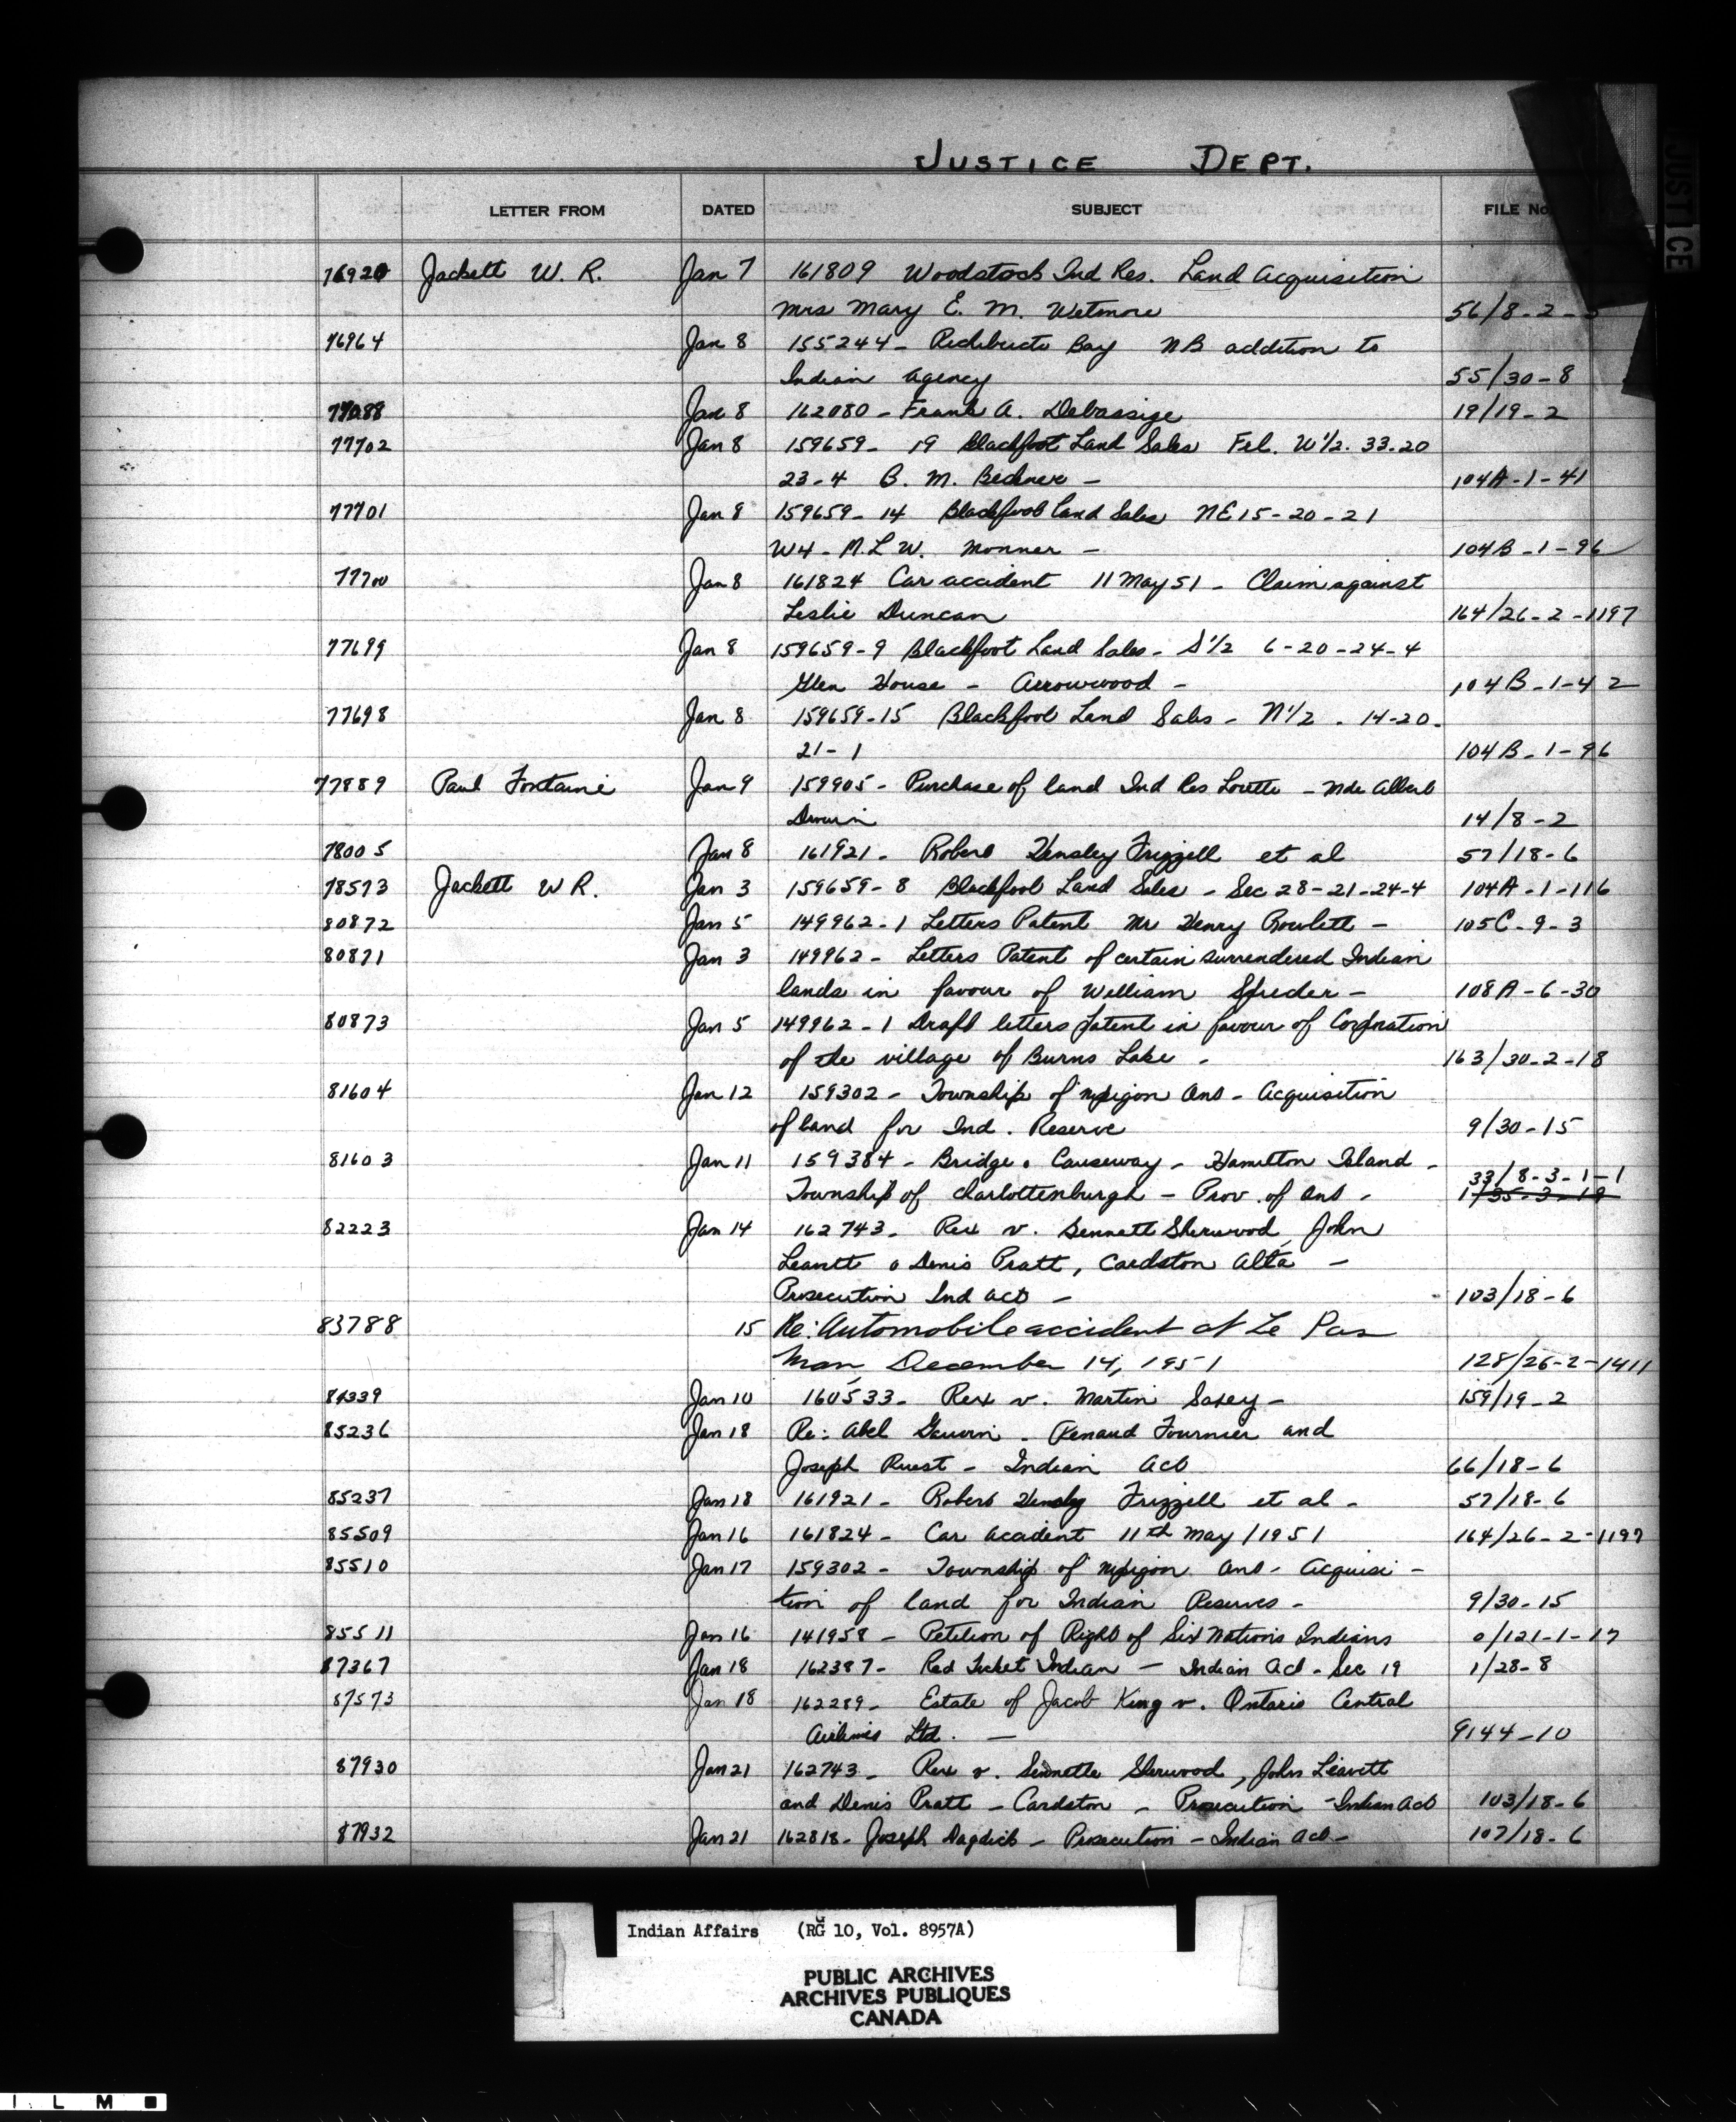 JUSTICE DEPT.
LETTER FROM DATED SUBJECT FILE No.
JUSTICE
76920 Jackett W. R. Jan 7 161809 Woodstock Ind Res. Land Acquisition
Mrs Mary E. M. Wetmore 56/8-2-
76964 Jan 8 155244- Richibucto Bay NB addition to
Indian Agency 55/30-8
77088 Jan 8 162080- Frank A. Debassige 19/19-2
77702 Jan 8 159659- 19 Blackfoot Land Sales Fel. W1/2. 33-20
23-4 B. M. Bedner - 104A-1-41
77701 Jan 8 159659-14 Blackfoot Land Sales NE15-20-21
W4- M.L W. Monner - 104B-1-96
77700 Jan 8 161824 Car accident 11 May 51 - Claim against
Leslie Duncan 164/26-2-1197
77699 Jan 8 159659-9 Blackfoot Land Sales - S1/2 6-20-24-4
Glen House - Arrowwood - 104B-1-42
77698 Jan 8 159659-15 Blackfoot Land Sales - N1/2 - 14-20-
21-1 104B-1-96
77889 Paul Fontaine Jan 9 159905- Purchase of land Ind Res Lorette - Mde Albert
Drouin 14/8-2
78005 Jan 8 161921- Robert Hensley Frizzell et al 57/18-6
78573 Jackett W R. Jan 3 159659-8 Blackfoot Land Sales - Sec 28-21-24-4 104A-1-116
80872 Jan 5 149962-1 Letters Patent Mr Henry Rowlett - 105C-9-3
80871 Jan 3 149962- Letters Patent of certain surrendered Indian
lands in favour of William Spreder - 108A-6-30
80873 Jan 5 149962-1 Draft letters patent in favour of Corporation
of the village of Burns Lake - 163/30-2-18
81604 Jan 12 159302- Township of Nipigon Ont - Acquisition
of land for Ind. Reserve 9/30-15
81603 Jan 11 159384- Bridge. Causeway - Hamilton Island -
33/8-3-1-1
Township of Charlottenburgh - Prov. of Ont - 1/35-3-19
82223 Jan 14 162743- Rex v. Sennett Sherwood, John
Leavitt & Denis Pratt, Cardston Alta -
Prosecution Ind Act - 103/18-6
83788 15 Re: Automobile accident at Le Pas
Man, December 14, 1951 128/26-2-1411
84339 Jan 10 160533- Rex v. Martin Saxey - 159/19-2
85236 Jan 18 Re: Abel Gauvin - Renaud Fournier and
Joseph Ruest - Indian Act 66/18-6
85237 Jan 18 161921- Robert Hensley Frizzell et al - 57/18-6
85509 Jan 16 161824- Car accident 11th May/1951 164/26-2-1197
85510 Jan 17 159302- Township of Nipigon Ont - Acquisi-
tion of land for Indian Reserves - 9/30-15
85511 Jan 16 141958- Petition of Right of Six Nations Indians 0/121-1-17
87367 Jan 18 162387- Red Ticket Indian - Indian Act - Sec 19 1/28-8
87573 Jan 18 162289- Estate of Jacob King v. Ontario Central
Airlines Ltd. - 9144-10
87930 Jan 21 162743- Rex v. Sennette Sherwood, John Leavitt
and Denis Pratt - Cardston - Prosecution - Indian Act 103/18-6
87932 Jan 21 162818- Joseph Dagdick - Prosecution - Indian Act - 107/18-6
Indian Affairs (RG 10, Vol. 8957A)
PUBLIC ARCHIVES
ARCHIVES PUBLIQUES
CANADA
I L M